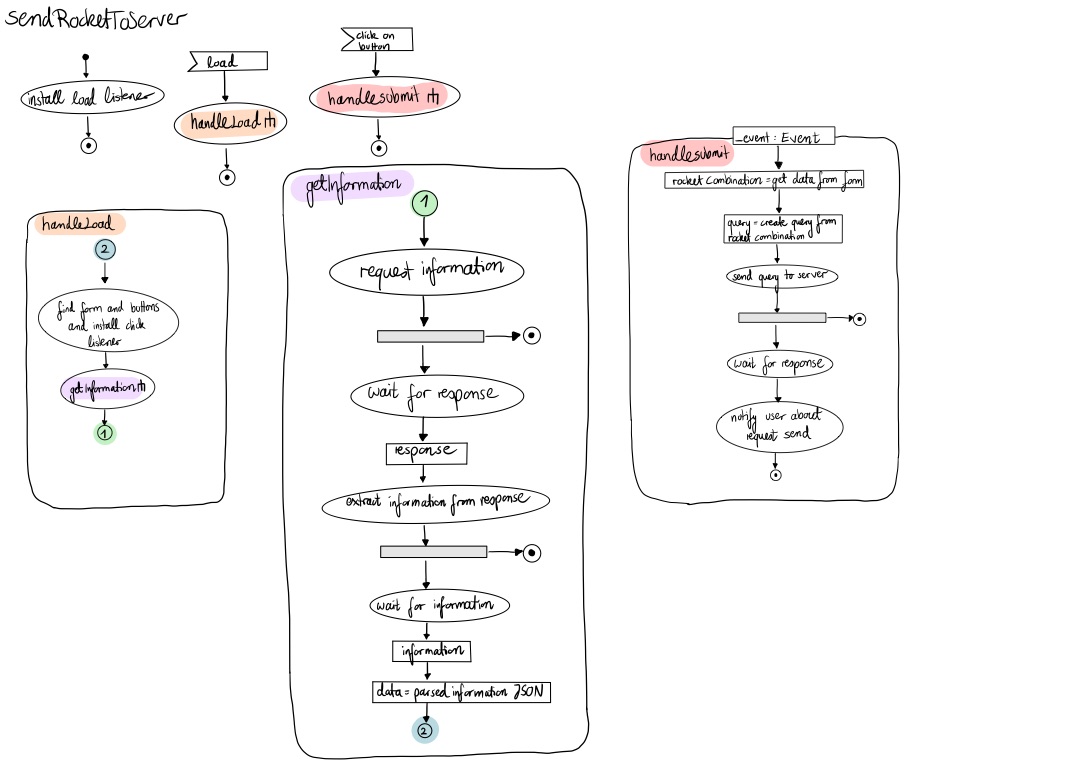 sendRocketToServer
install load listener
load
handleLoad
click on
button
handlesubmit
handleLoad
2
find form and buttons
and install click
listener
getInformation
1
getInformation
1
request information
wait for response
response
extract information from response
wait for information
information
data = parsed information JSON
2
handlesubmit
_event : Event
rocket Combination = get data from form
query = create query from
rocket combination
send query to server
wait for response
notify user about
request send